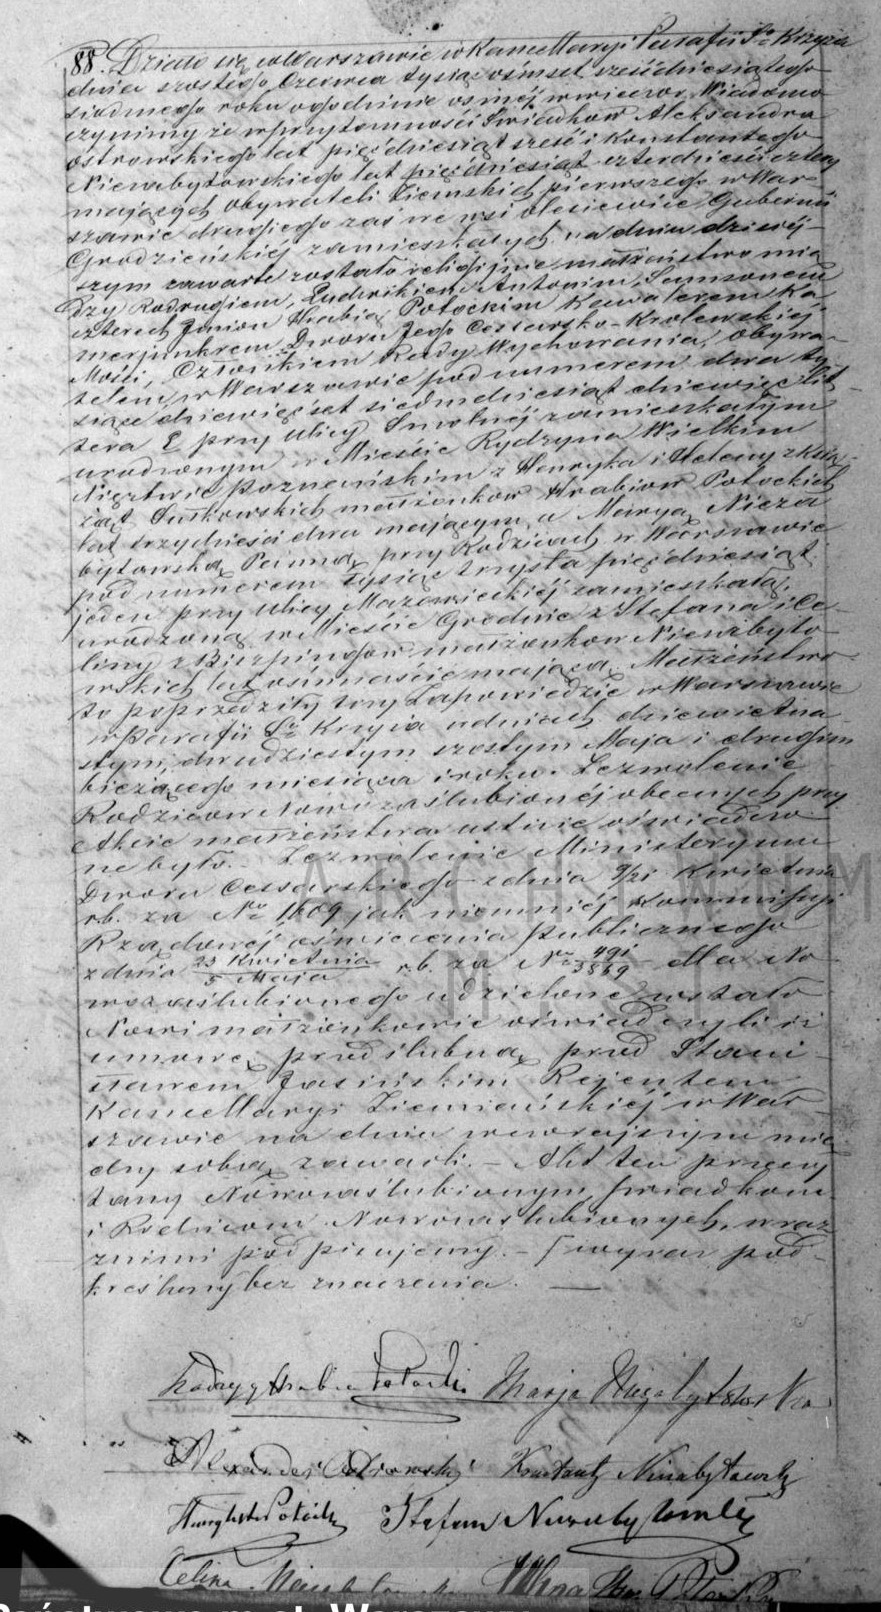 88. Działo się w Warszawie w Kancellaryi Parafii Sgo Krzyża
dnia szóstego Czerwca tysiąc ośmset sześćdziesiątego
siódmego roku o godzinie ósmej wieczor. Wiadomo
czynimy że w przytomności Świadków Alexandra
Ostrowskiego lat pięćdziesiąt sześć i Konstantego
Niezabytowskiego lat pięćdziesiąt czterdzieści cztery
mających obywateli Ziemskich pierwszego w War-
szawie drugiego zaś we wsi Gubernii
Grodzieńskiej zamieszkałych, na dniu dzisiej-
szym zawarte zostało religijne małżeństwo mię
dzy Rodrygiem, Ludwikiem, Antonim, Samsonem
czterech Imion Hrabią Potockim Kawalerem Ka
merjunkrem Dworu Jego Cesarsko-Królewskiej
Mości, Członkiem Rady Wychowania, Obywa-
telem w Warszawie pod numerem dwa ty
siące dziewięćset siedmdziesiąt dziewięć lit
tera E przy ulicy Smolnej zamieszkałym
urodzonym w Mieście Rydzyna Wielkim
Księztwie Poznańskim z Henryka i Heleny z Ksią-
żąt Sułkowskich małżonków Hrabiów Potockich
lat trzydzieści dwa mającym, a Maryą Nieza
bytowską Panną, przy Rodzicach w Warszawie
pod numerem tysiąc trzysta pięćdziesiąt
jeden przy ulicy Mazowieckiej zamieszkałą,
urodzoną w Mieście Grodnie z Stefana i Ce-
liny z Bispingów małżonków Niezabyto
wskich lat ośmnaście mającą. Małżeństwo
to poprzedziły trzy Zapowiedzie w Warszawie
w Parafii Sgo Krzyża w dniach dziewiętna
stym, dwudziestym szóstym Maja i drugim
bieżącego miesiąca i roku. Zezwolenie
Rodziców Nowozaślubionej obecnych przy
Akcie małżeństwa ustnie oświadczo
ne było. - Zezwolenie Ministeryum
Dworu Cesarskiego z dnia 9/21 Kwietnia
r.b. za No 1609 jak niemniej Kommissyi
Rządowej oświecenia publicznego
z dnia 23 Kwietnia/5 Maja r.b. za No 491/3869 dla No
wozaślubionego udzielone zostało
Nowi małżonkowie oświadczyli iż
umowę przedślubną przed Stani-
sławem Jasińskim Rejentem
Kancellaryi Ziemiańskiej w War-
szawie na dniu wczorajszym mię
dzy sobą zawarli. - Akt ten przeczy
tany Nowozaślubionym, świadkom
i Rodzicom Nowozaślubionych, wraz
z nimi podpisujemy. - wyraz pod-
kreślony bez znaczenia.
Rodryg Hrabia Potocki Marja Niezabytowska
Alexander Ostrowski Konstanty Niezabytowski
Potocki Stefan Niezabytowski
Celina Potocka